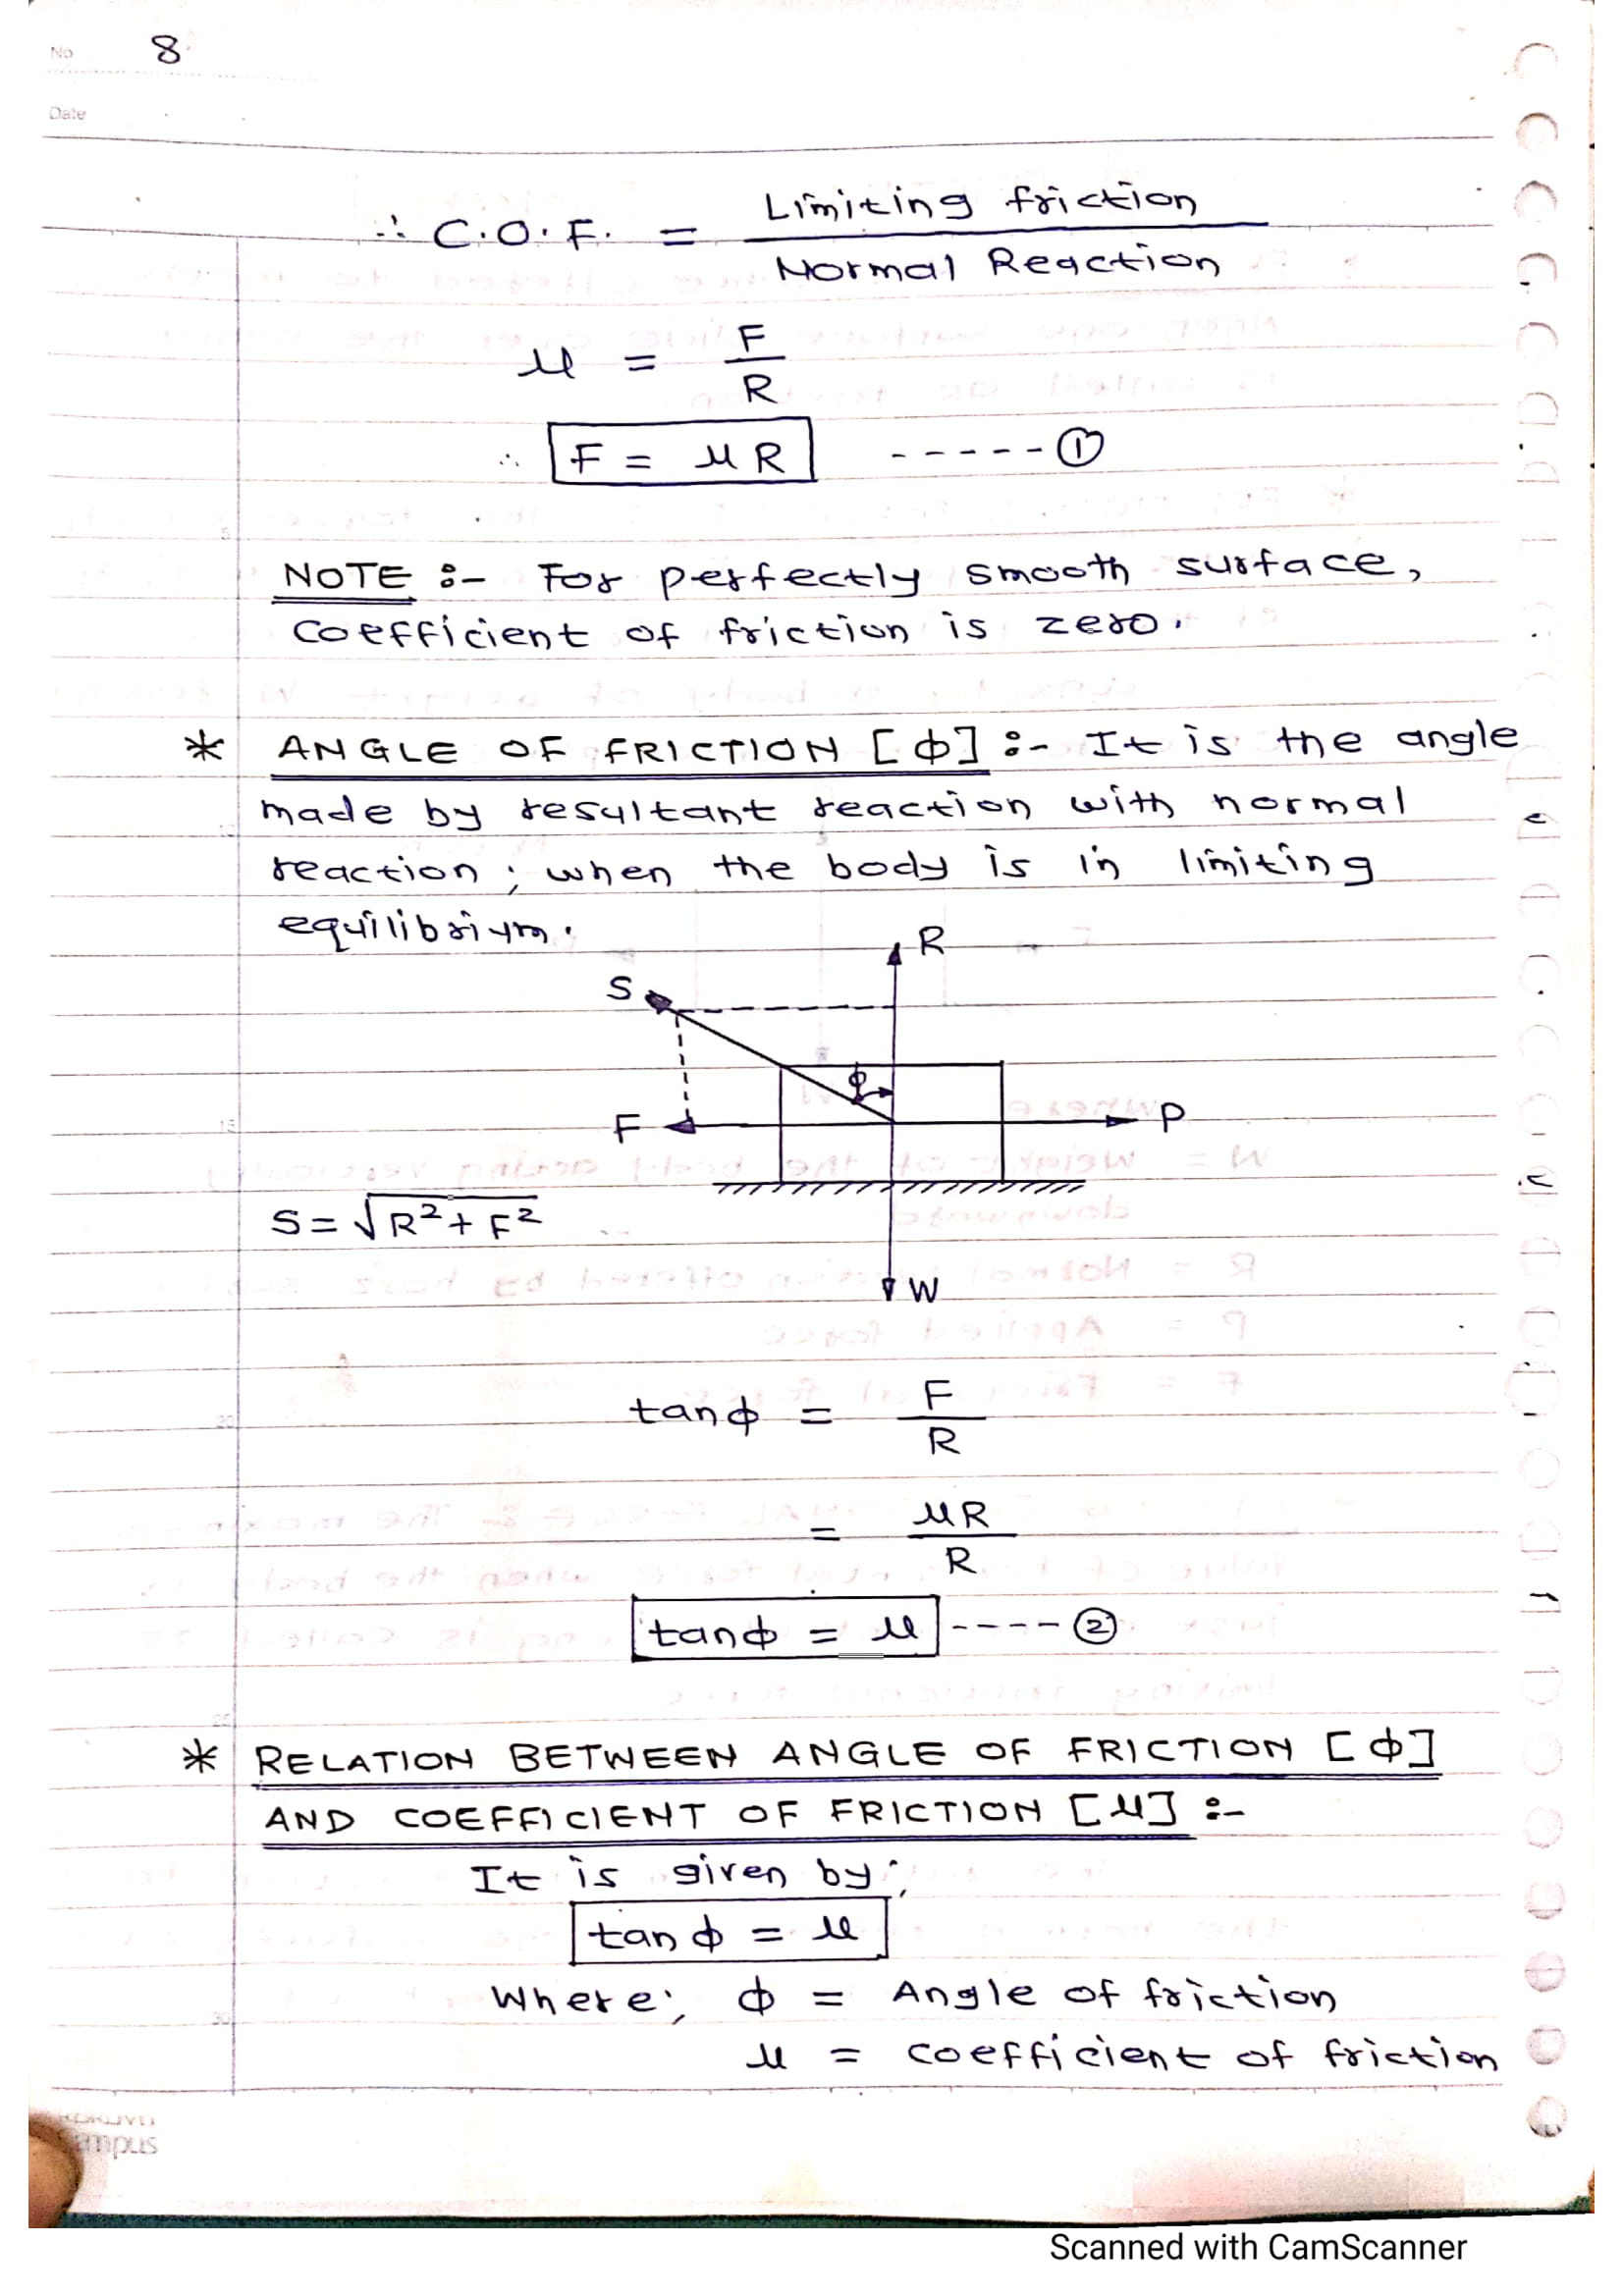 No 8
Date
∴ C.O.F. = Limiting friction / Normal Reaction
μ = F / R
∴ F = μR -----①
5
NOTE :- For perfectly smooth surface,
coefficient of friction is zero.
* ANGLE OF FRICTION [Φ] :- It is the angle
made by resultant reaction with normal
reaction; when the body is in limiting
equilibrium.
R
S
Φ
F
P
15
S = √R² + F²
W
tanΦ = F / R
20
= μR / R
tanΦ = μ ----②
25
* RELATION BETWEEN ANGLE OF FRICTION [Φ]
AND COEFFICIENT OF FRICTION [μ] :-
It is given by;
tanΦ = μ
Where; Φ = Angle of friction
30
μ = coefficient of friction
mpus
Scanned with CamScanner